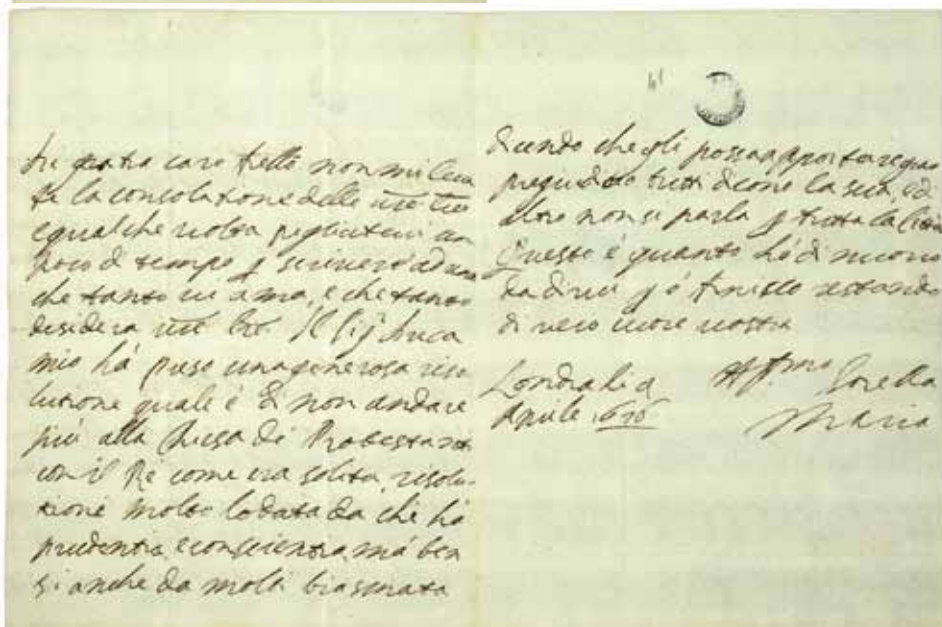 caro fratello non mi
la consolatione delle vre lre
e qualche volta pigliatevi un
poco di tempo p scrivere ad una
che tanto vi ama, e che tanto
desidera vre lre. Il Sig Duca
mio há preso una generosa riso-
lutione quale é di non andare
piú alla chiesa de Protestanti
con il Ré come era solito, risolu-
tione molto lodata da chi há
prudentia, e conscientia, má ben
si anche da molti biasmata
dicendo che gli possa apportare gran
pregiuditio tutti dicono la sua, e di
altro non si parla p tutta la Città
Questo é quanto hó di nuovo
da dirvi pó finisco restando
di vero cuore vostra
Londra li
Aprile 1676
Affma Sorella
Maria